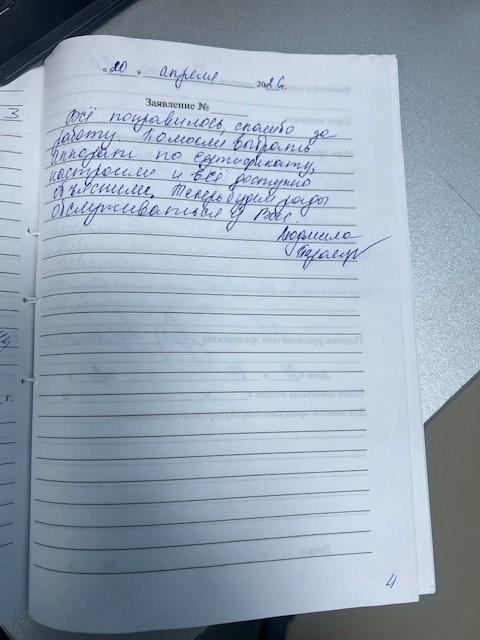 « 20 » апреля 2026г.
Заявление №
Всё понравилось, спасибо за
работу. Помогли выбрать
аппараты по сертификату,
настроили и всё доступно
объяснили. Теперь будем рады
обслуживаться у Вас.
Людмила
4
3
г.